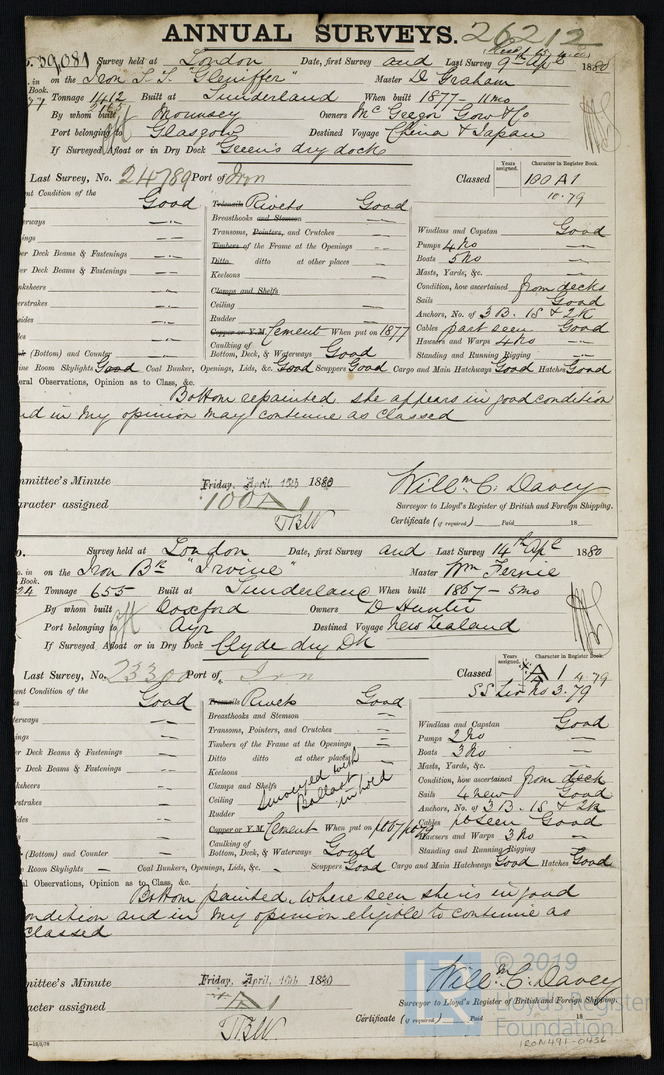 ANNUAL SURVEYS. 26212
39,081 Survey held at London Date, first Survey and Last Survey 9th Apl 1880
in on the Iron S.S. "Gleniffer" Master D Graham
Book. Tonnage 1412 Built at Sunderland When built 1877 - 11mo
By whom built Mounsey Owners McGregor Gow & Co
Port belonging to Glasgow Destined Voyage China & Japan
If Surveyed Afloat or in Dry Dock Green's dry dock
Last Survey, No. 24789 Port of Iron Classed Years assigned. Character in Register Book. 100A1
10.79
ent Condition of the Good Treenails Rivets Good
erways Breasthooks and Stemson
ings Transoms, Pointers, and Crutches Windlass and Capstan Good
er Deck Beams & Fastenings Timbers of the Frame at the Openings Pumps 4 No
er Deck Beams & Fastenings Ditto ditto at other places Boats 5 No
Keelsons Masts, Yards, &c.
ksheers Clamps and Shelfs Condition, how ascertained from decks
erstrakes Ceiling Sails Good
sides Rudder Anchors, No. of 3B. 1S & 2K
Copper or Y.M. Cement When put on 1877 Cables part seen Good
(Bottom) and Counter Caulking of Bottom, Deck, & Waterways Good Hawsers and Warps 4 No
Standing and Running Rigging
ine Room Skylights Good Coal Bunker, Openings, Lids, &c. Good Scuppers Good Cargo and Main Hatchways Good Hatches Good
eral Observations, Opinion as to Class, &c.
Bottom repainted. she appears in good condition
nd in my opinion may continue as classed
mmittee's Minute Friday, April 1880
aracter assigned 100A1 Willm C. Davey
TBW Surveyor to Lloyd's Register of British and Foreign Shipping.
Certificate (if required) Paid 18
o. Survey held at London Date, first Survey and Last Survey 14th Apl 1880
o. in on the Iron Bk "Irvine" Master Wm Fernie
Book. 24 Tonnage 655 Built at Sunderland When built 1867 - 5mo
By whom built Doxford Owners D Hunter
Port belonging to Ayr Destined Voyage New Zealand
If Surveyed Afloat or in Dry Dock Clyde dry Dk
Last Survey, No. 23300 Port of Iron Classed Years assigned. Character in Register Book. A 1 4.79
SS Lir No 3.79
ent Condition of the Good Treenails Rivets Good
terways Breasthooks and Stemson
ings Transoms, Pointers, and Crutches Windlass and Capstan Good
er Deck Beams & Fastenings Timbers of the Frame at the Openings Pumps 2 No
er Deck Beams & Fastenings Ditto ditto at other places Boats 3 No
Keelsons Masts, Yards, &c.
ksheers Clamps and Shelfs Condition, how ascertained from deck
erstrakes Ceiling Surveyed with Ballast in hold Sails 4 new Good
sides Rudder Anchors, No. of 3B. 1S & 2K
Copper or Y.M. Cement When put on pt67/pt79 Cables pt seen Good
(Bottom) and Counter Caulking of Bottom, Deck, & Waterways Good Hawsers and Warps 3 No
Standing and Running Rigging
e Room Skylights Coal Bunkers, Openings, Lids, &c. Scuppers Good Cargo and Main Hatchways Good Hatches Good
al Observations, Opinion as to Class, &c.
Bottom painted. Where seen she is in good
ondition and in my opinion eligible to continue as
classed
mittee's Minute Friday, April 16th 1880
acter assigned A1 Willm C. Davey
TBW Surveyor to Lloyd's Register of British and Foreign Shipping.
Certificate (if required) Paid 18
© 2019
Lloyd's Register
Foundation
IRON491-0436